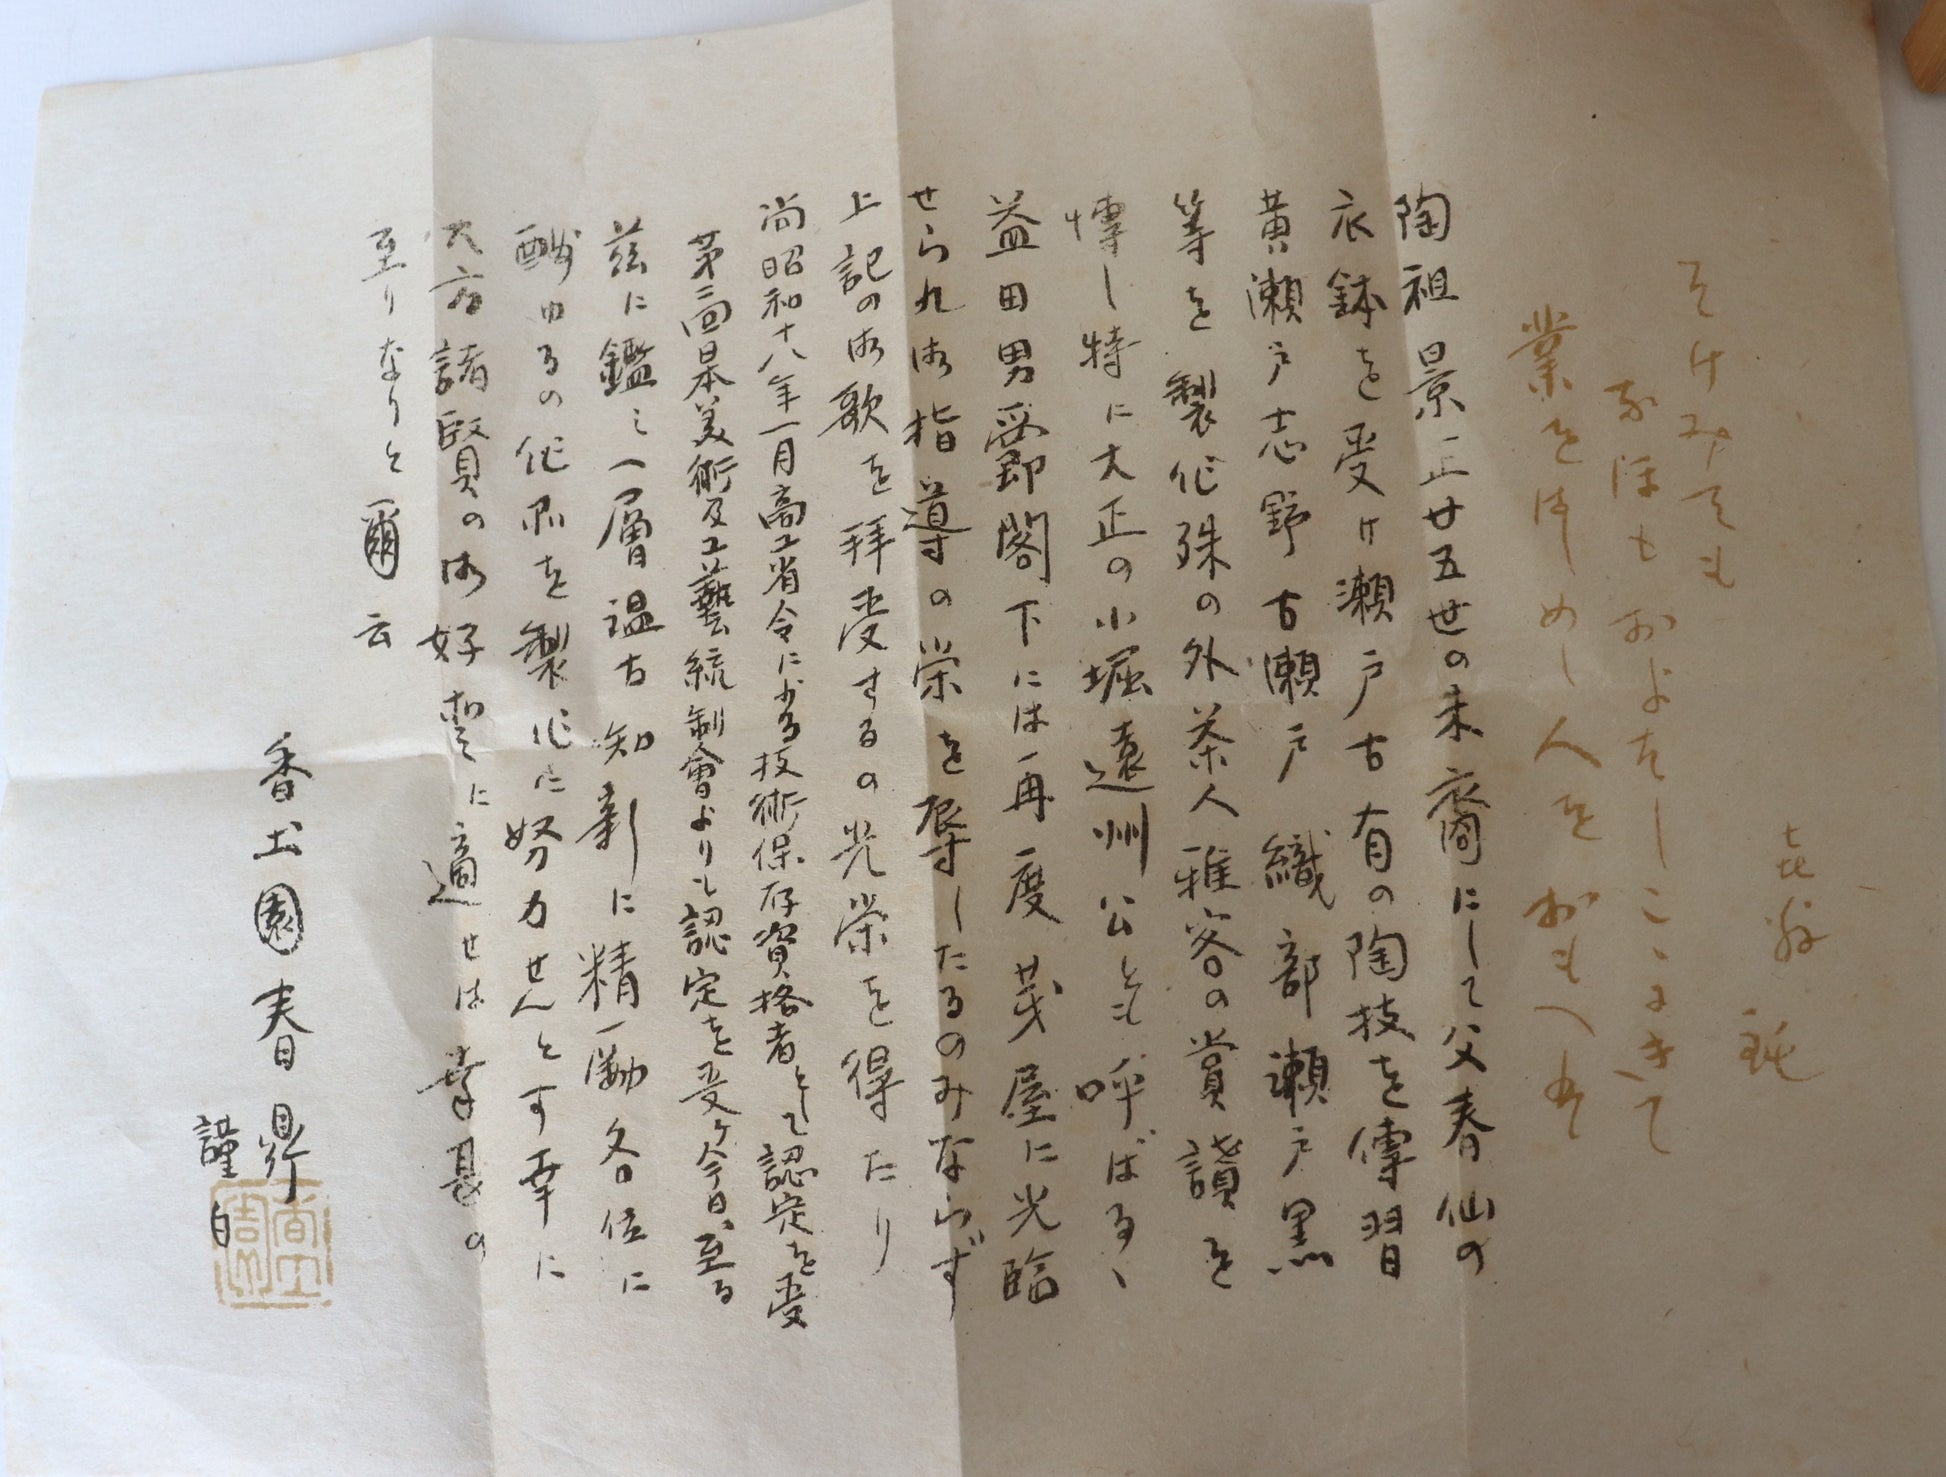 そけみても
なほもおよはしこゝにきて
業をはしめし人をおもへは
陶祖景正廿五世の末裔にして父春仙の
衣鉢を受け瀬戸古有の陶技を傳習
黄瀬戸志野古瀬戸織部瀬戸黒
等を製作殊の外茶人雅客の賞讃を
博し特に大正の小堀遠州公とも呼ばるゝ
益田男爵閣下には再度茂屋に光臨
せられ御指導の栄を辱したるのみならず
上記の御歌を拝受するの光栄を得たり
尚昭和十八年一月商工省令に依る技術保存資格者として認定を受
第二回日本美術及工藝統制會よりも認定を受ケ今日ニ至る
茲に鑑ミ一層温古知新に精励各位に
酬ゆるの作品を製作に努力せんとす幸に
大方諸賢の御好評に適せは幸甚の
至りなりと爾云
香土園春鼎
謹白
香土園